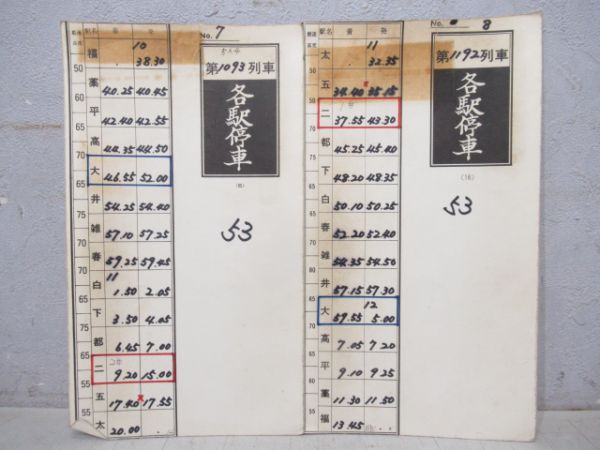 No. 7
駅名 着 発
第1093列車
各駅停車
53
福 10 38.30
薬 40.25 40.45
平 42.40 42.55
高 44.35 44.50
大 46.55 52.00
井 54.25 54.40
雑 57.10 57.25
春 59.25 59.45
白 11 1.50 2.05
下 3.50 4.05
都 6.45 7.00
二 9.20 15.00
五 17.40 17.55
太 20.00
50
65
70
65
75
70
65
55
60
55
No. 8
駅名 着 発
第1192列車
各駅停車
(16)
53
太 11 32.35
五 34.40 35.15
二 37.55 43.30
都 45.25 45.40
下 48.20 48.35
白 50.10 50.25
春 52.20 52.40
雑 54.35 54.50
井 57.15 57.30
大 59.55 12 5.00
高 7.05 7.20
平 9.10 9.25
薬 11.30 11.50
福 13.45
50
70
65
75
70
85
70
65
55